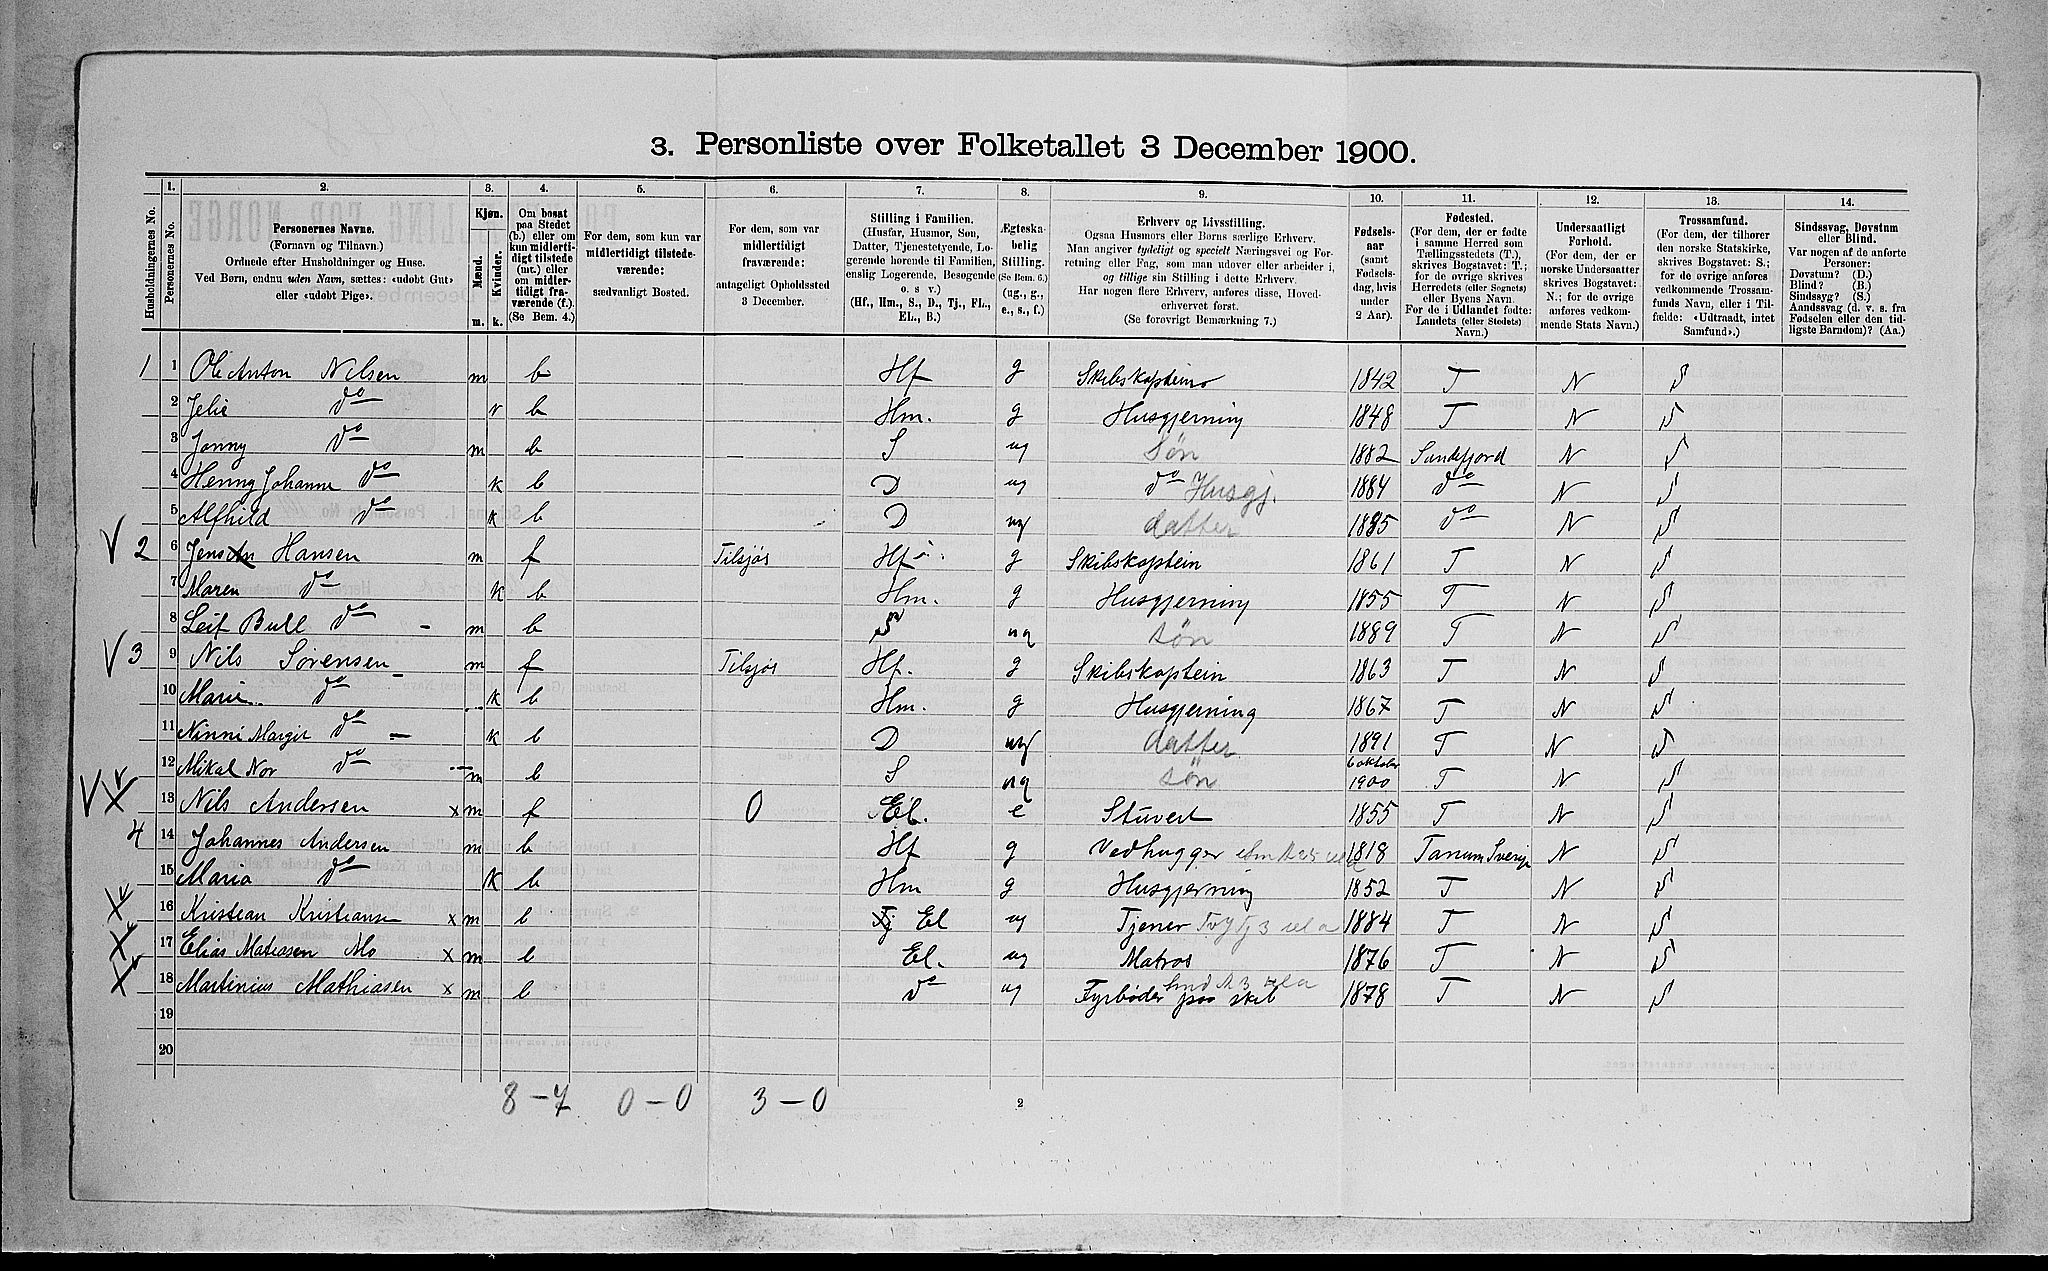 3. Personliste over Folketallet 3 December 1900.
Husholdningernes No.
1. Personernes No.
2. Personernes Navne.
(Fornavn og Tilnavn.)
Ordnede efter Husholdninger og Huse.
Ved Børn, endnu uden Navn, sættes: «udobt Gut»
eller «udobt Pige».
3. Kjøn.
Mænd. Kvinder.
m. k.
4. Om bosat
paa Stedet
(b.) eller om
kun midlerti-
digt tilstede
(mt.) eller
om midler-
tidigt fra-
værende (f.).
(Se Bem. 4.)
5. For dem, som kun var
midlertidigt tilstede-
værende:
sædvanligt Bosted.
6. For dem, som var
midlertidigt
fraværende:
antageligt Opholdssted
3 December.
7. Stilling i Familien.
(Husfar, Husmor, Søn,
Datter, Tjenestetyende, Lo-
gerende hørende til Familien,
enslig Logerende, Besøgende
o. s v.)
(Hf., Hm., S., D., Tj., FL.,
EL., B.)
8. Ægteska-
belig
Stilling.
(Se Bem. 6.)
(ug., g.,
e., s., f.)
9. Erhverv og Livsstilling.
Ogsaa Husmors eller Børns særlige Erhverv.
Man angiver tydeligt og specielt Næringsvei og For-
retning eller Fag, som man udover eller arbeider i,
og tillige sin Stilling i dette Erhverv.
Har nogen flere Erhverv, anføres disse, Hoved-
erhvervet først.
(Se forøvrigt Bemærkning 7.)
10. Fødsels-
aar
(samt
Fødsels-
dag, hvis
under
2 Aar).
11. Fødested.
(For dem, der er fødte
i samme Herred som
Tællingsstedets (T.),
skrives Bogstavet: T.;
for de øvrige skrives
Herredets (eller Sognets)
eller Byens Navn.
For de i Udlandet fødte:
Landets (eller Stedets)
Navn.)
12. Undersaatligt
Forhold.
(For dem, der er
norske Undersaatter
skrives Bogstavet:
N.; for de øvrige
anføres vedkom-
mende Stats Navn.)
13. Trossamfund.
(For dem, der tilhører
den norske Statskirke,
skrives Bogstavet: S.;
for de øvrige anføres
vedkommende Trossam-
funds Navn, eller i Til-
fælde: «Udtraadt, intet
Samfund».)
14. Sindssvag, Døvstum
eller Blind.
Var nogen af de anførte
Personer:
Døvstum? (D.)
Blind? (B.)
Sindssyg? (S.)
Aandssvag (d. v. s. fra
Fødselen eller den tid-
ligste Barndom)? (Aa.)
1 1 Ole Anton Nilsen m b Hf g Skibskaptein 1842 T N S
2 Jelie do k b Hm. g Husgjerning 1848 T N S
3 Jonny do m b S ug Søn 1882 Sandefjord N S
4 Henny Johanne do k b D ug do Husgj. 1884 do N S
5 Alfhild do k b D ug datter 1885 do N S
V 2 6 Jens Hansen m f Tilsjøs Hf g Skibskaptein 1861 T N S
7 Maren do k b Hm. g Husgjerning 1855 T N S
8 Leif Bull do m b S ug søn 1889 T N S
V 3 9 Nils Sørensen m f Tilsjøs Hf. g Skibskaptein 1863 T N S
10 Marie do k b Hm. g Husgjerning 1867 T N S
11 Ninni Margit do k b D ug datter 1891 T N S
12 Mikal Nor do m b S ug søn 6 oktober 1900 T N S
V X 13 Nils Andersen x m f 0 El. e Stuvert 1855 T N S
4 14 Johannes Andersen m b Hf g Vedhugger 1818 Tanum Sverige N S
15 Maria do k b Hm g Husgjerning 1852 T N S
X 16 Kristian Kristiansen x m b Tj El ug Tjener 1884 T N S
X 17 Elias Matiasen Mo x m b El. ug Matros 1876 T N S
X 18 Martinius Mathiasen x m b do ug Fyrbøder paa skib 1878 T N S
19
20
8 – 7 0 – 0 3 – 0
2